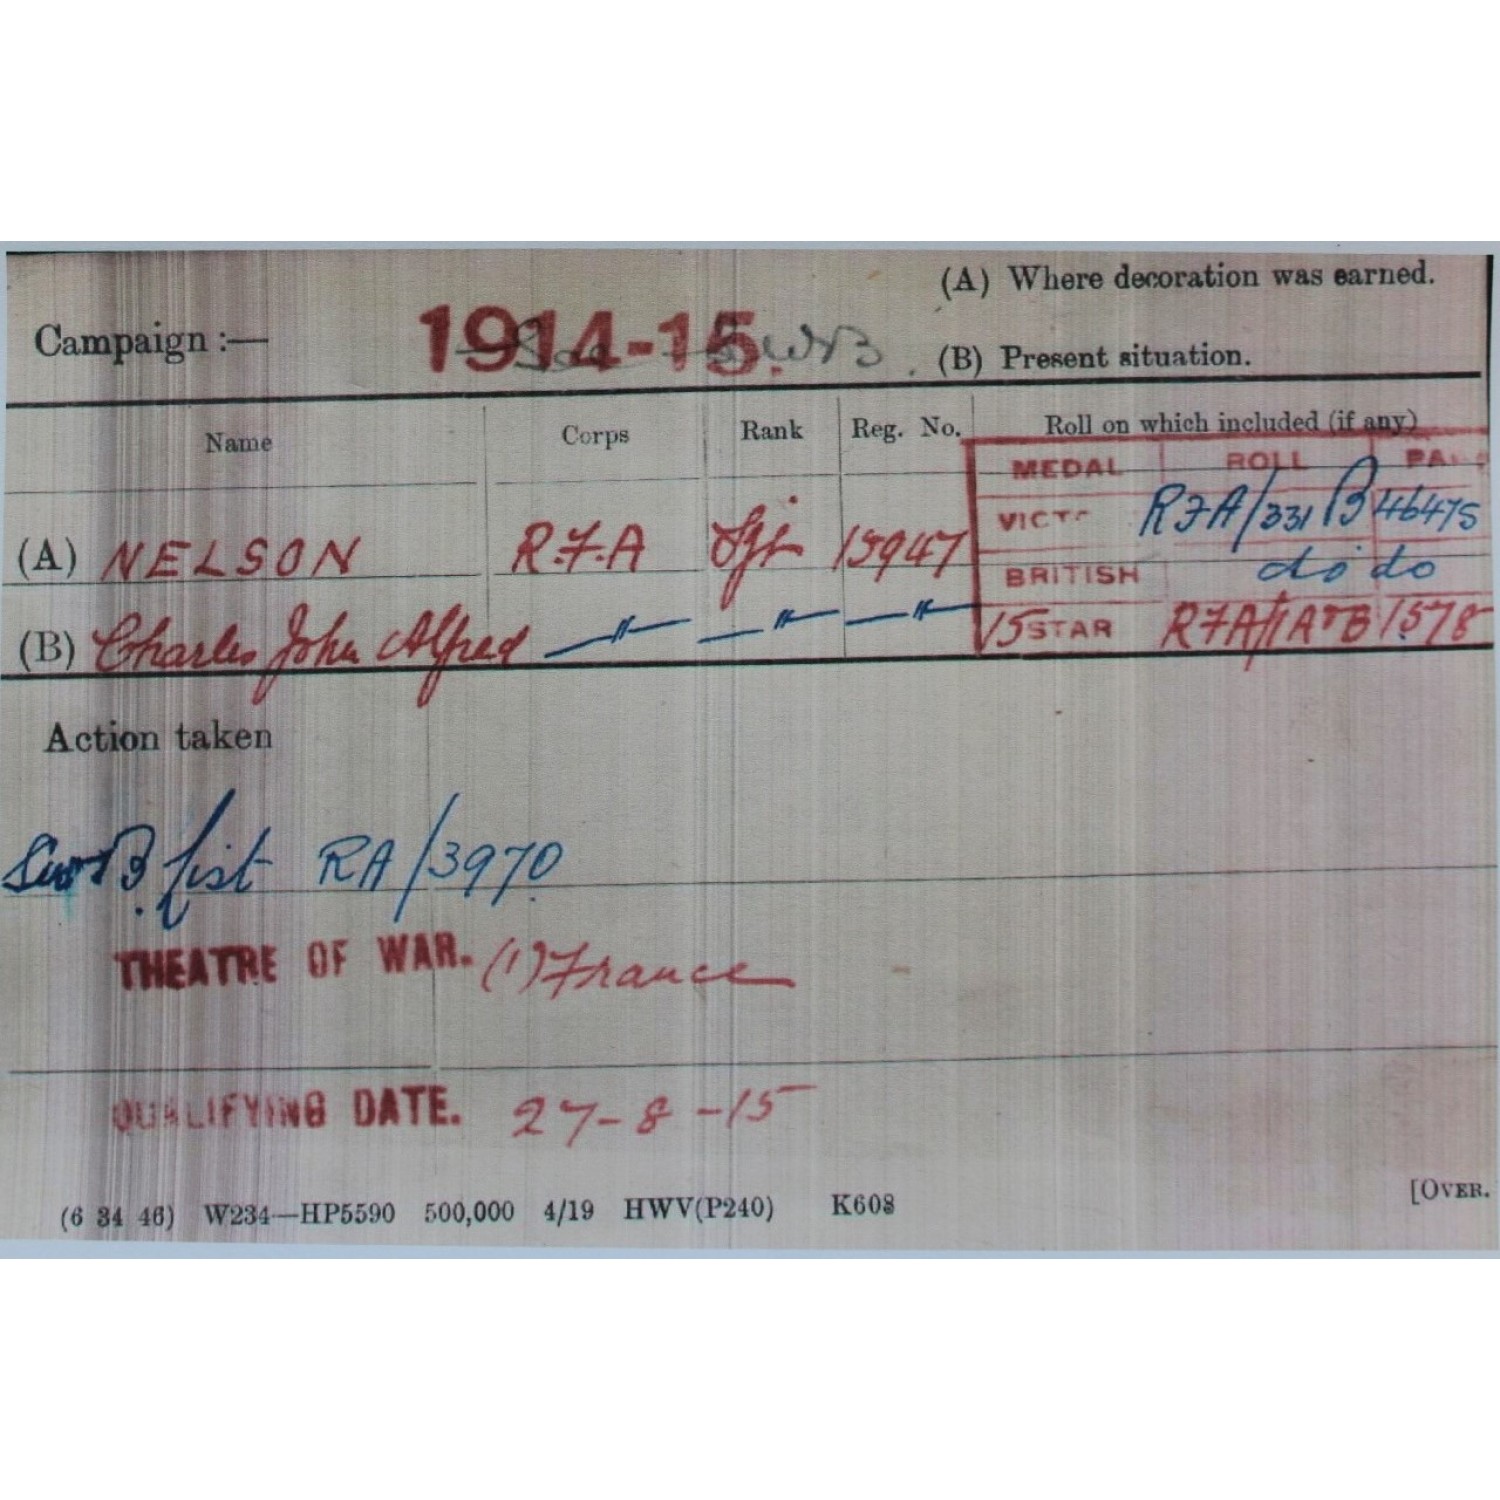 (A) Where decoration was earned.
Campaign :— 1914-15. (B) Present situation.
Name Corps Rank Reg. No. Roll on which included (if any)
MEDAL ROLL
(A) NELSON R.F.A Sjt 15947 VICT RFA/331 B 46475
BRITISH do do
(B) Charles John Alfred —"— —"— —"— 15 STAR RFA/1A&B 1578
Action taken
SWB list RA/3970
THEATRE OF WAR. (1) France
QUALIFYING DATE. 27-8-15
(6 34 46) W234—HP5590 500,000 4/19 HWV(P240) K608 [OVER.